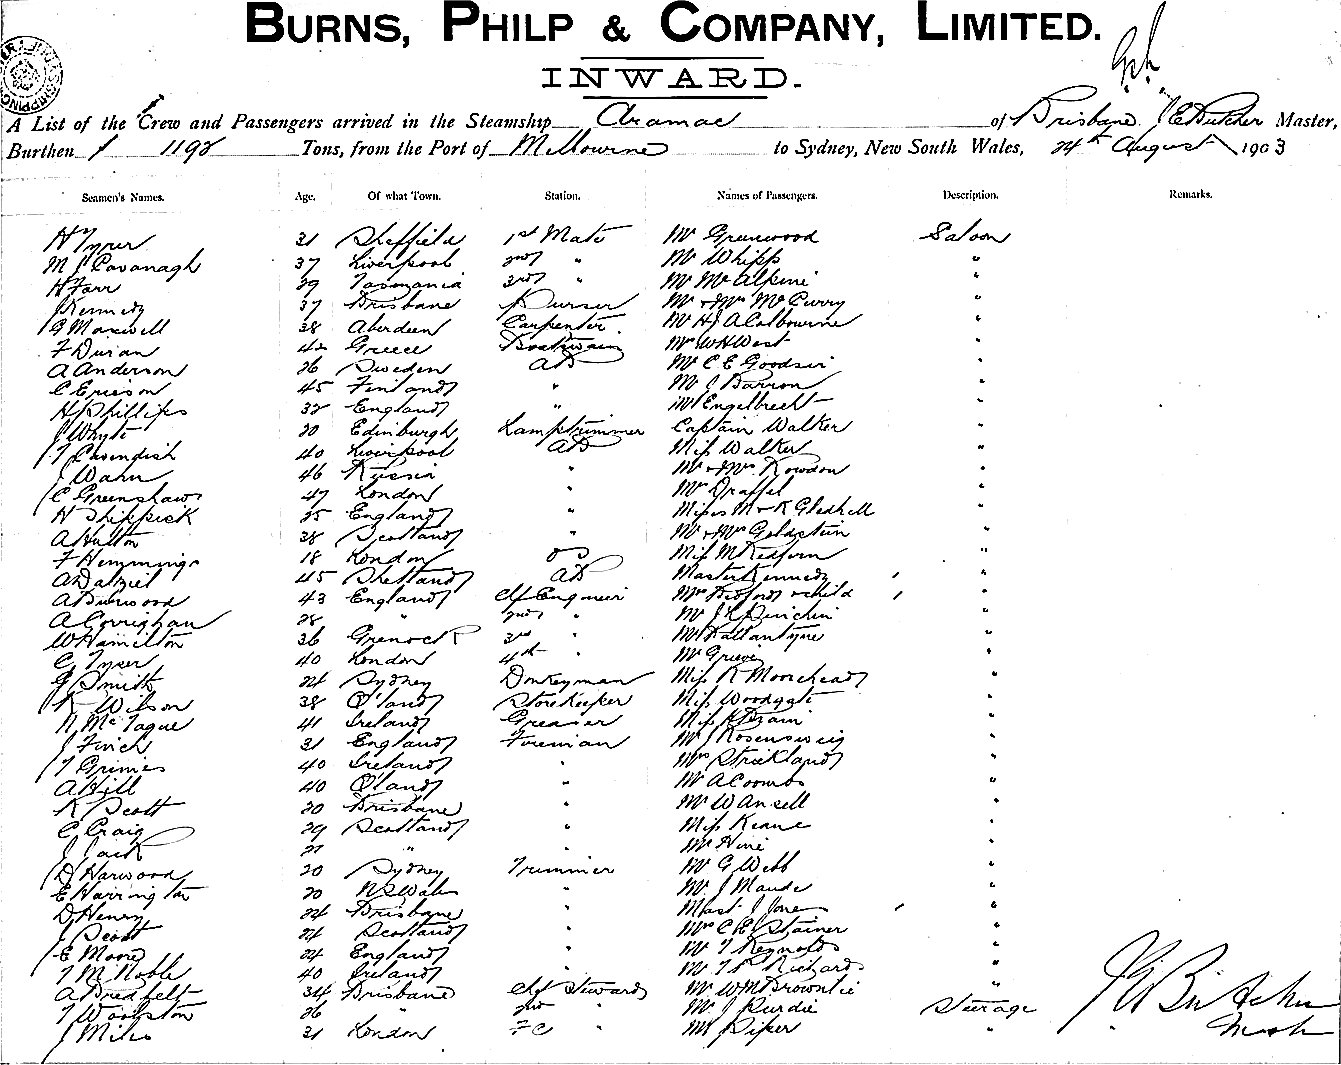 BURNS, PHILP & COMPANY, LIMITED.
INWARD.
A List of the Crew and Passengers arrived in the Steamship Aramac of Brisbane Master,
Burthen 1192 Tons, from the Port of Melbourne to Sydney, New South Wales, 24th August 1903
Seamen's Names. Age. Of what Town. Station. Names of Passengers. Description. Remarks.
H Tyrer 31 Sheffield 1st Mate Mr Greenwood Saloon
M J Cavanagh 37 Liverpool 2nd " Mr Whipp "
H Farr 29 Tasmania 3rd " Mr McAlpine "
J Kennedy 37 Brisbane Purser Mr & Mrs McCurry "
G Maxwell 38 Aberdeen Carpenter Mr H J A Colbourne "
F Duran 42 Greece Boatswain Mr W H West "
A Anderson 26 Sweden AB Mr C E Goodsir "
C Ericson 45 Finland " Mr J Barron "
H Phillips 32 England " Mr Engelbrecht "
J Whyte 30 Edinburgh Lamptrimmer Captain Walker "
T Cavendish 40 Liverpool AB Miss Walker "
J Wahn 46 Russia " Mr & Mrs Rowdon "
C Greenshaw 47 London " Mr Draffel "
H Shippick 25 England " Misses M & K Gledhill "
A Hutton 38 Scotland " Mr & Mrs Goldstein "
F Hemmings 18 London OS Miss M Redfern "
A Dalziel 45 Shetland AB Master Kennedy "
A Burwood 43 England Chf Engineer Mrs Bedford & child "
A Corrighan 28 " 2nd " Mr "
W Hamilton 36 Grenock 3rd " Mr Ballantyne "
C Tyser 40 London 4th " Mr Grieve "
G Smith 24 Sydney Donkeyman Miss R Moorehead "
R Wilson 38 Q'land Storekeeper Miss Woodgate "
N McTague 41 Ireland Greaser Miss Brain "
J Finch 31 England Fireman Mr J Rosensweig "
T Grimes 40 Ireland " Mrs Strickland "
A Hill 40 Q'land " Mr A Coombs "
R Scott 30 Brisbane " Mr W Ansell "
C Craig 29 Scotland " Miss Keane "
J Jack 27 " " Mr Hine "
D Harwood 20 Sydney Trimmer Mr G Webb "
E Harrington 20 NSWales " Mr J Maude "
D Henry 24 Brisbane " Mast. J Jones "
J Scott 24 Scotland " Mrs C E Stainer "
E Moore 24 England " Mr T Reynolds "
T M Noble 40 Ireland " Mr T R Richards "
A Bredfelt 34 Brisbane Chf Steward Mr W M Brownlie "
T Woolston 26 " 2nd " Mr J Purdie Steerage
J Miles 21 London FC " Mr Piper "